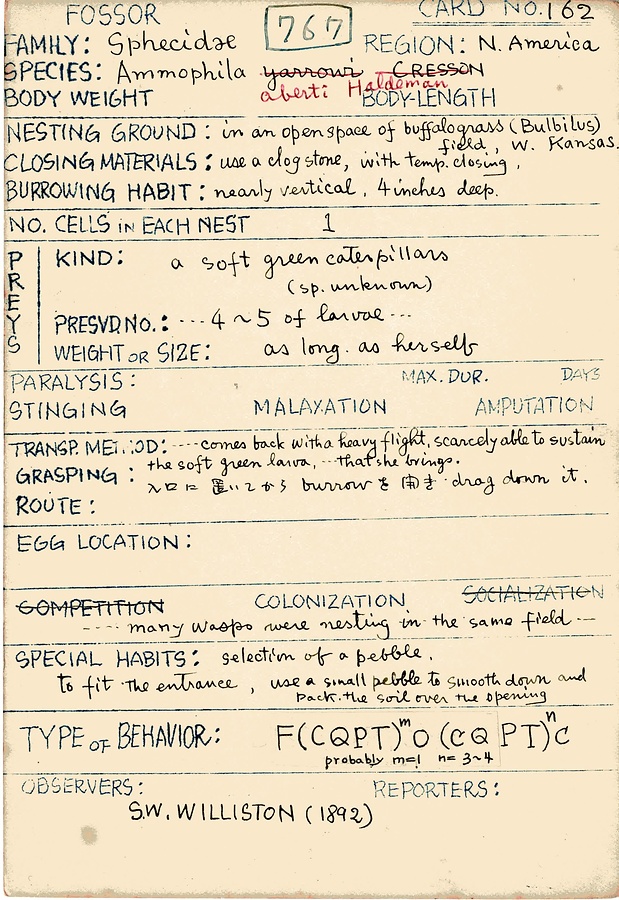 FOSSOR 767 CARD NO. 162
FAMILY: Sphecidae REGION: N. America
SPECIES: Ammophila yarrowi CRESSON
aberti Haldeman
BODY WEIGHT BODY-LENGTH
NESTING GROUND: in an open space of buffalograss (Bulbilus)
field, W. Kansas.
CLOSING MATERIALS: use a clog stone, with temp. closing,
BURROWING HABIT: nearly vertical, 4 inches deep.
NO. CELLS IN EACH NEST 1
PREYS
KIND: a soft green caterpillars
(sp. unknown)
PRESVD NO.: --- 4 ~ 5 of larvae ---
WEIGHT OR SIZE: as long as herself
PARALYSIS: MAX. DUR. DAYS
STINGING MALAXATION AMPUTATION
TRANSP. METHOD: ---- comes back with a heavy flight, scarcely able to sustain
GRASPING: the soft green larva, --- that she brings.
入口に置いてから burrow を開き drag down it.
ROUTE:
EGG LOCATION:
COMPETITION COLONIZATION SOCIALIZATION
---- many wasps were nesting in the same field --
SPECIAL HABITS: selection of a pebble,
to fit the entrance, use a small pebble to smooth down and
pack the soil over the opening
TYPE OF BEHAVIOR: F(CQPT)ᵐO(CQPT)ⁿC
probably m=1 n=3~4
OBSERVERS: REPORTERS:
S.W. WILLISTON (1892)